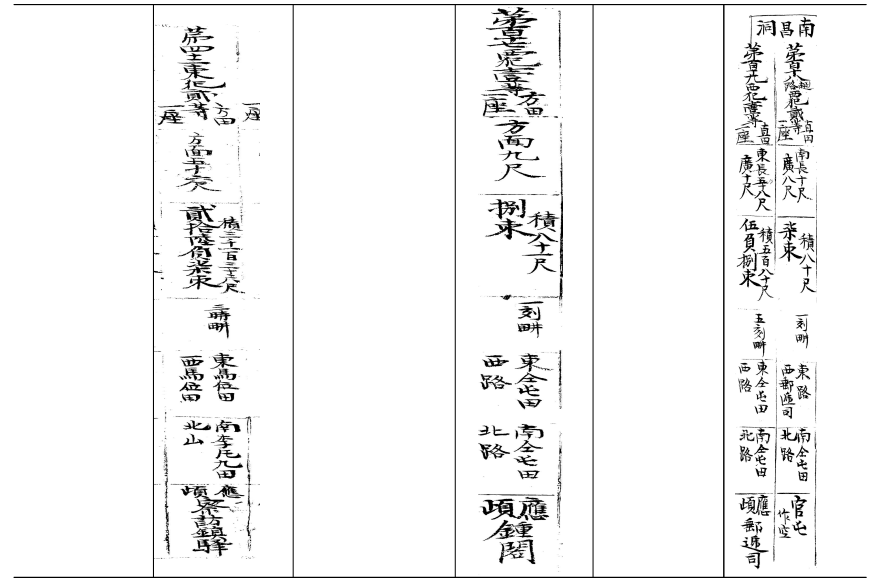 南昌洞
第百八越路犯貳等
直田
一座
南長十尺
廣八尺
積八十尺
柒束
一刻畊
東路
西郵遞司
南仝屯田
北路
官屯
作空
第百九西犯壹等
直田
一座
東長五十八尺
廣十尺
積五百八十尺
伍負捌束
五刻畊
東仝屯田
西路
南仝屯田
北路
應
頉郵遞司
犯壹等
方田
一座
方面九尺
積八十一尺
捌束
一刻畊
東仝屯田
西路
南仝屯田
北路
應
頉鍾閣
東犯貳等
方田
一座
方面五十六尺
積三千一百三十六尺
貳拾陸負柒束
三時畊
東馬位田
西馬位田
北山
應
頉察訪